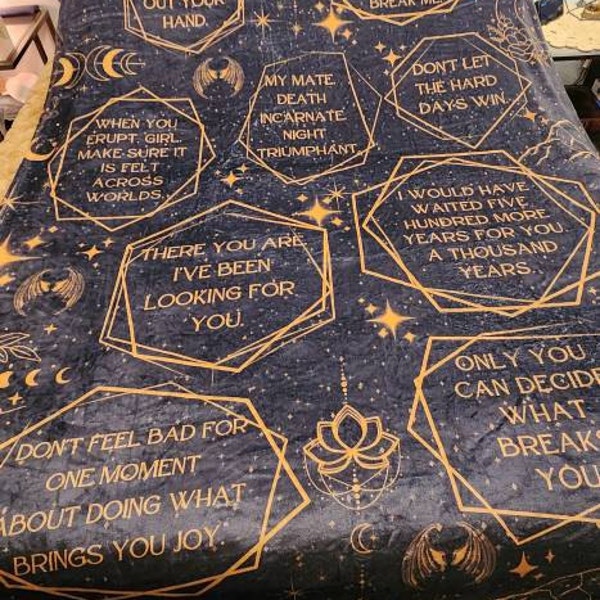 OUT YOUR
HAND.
BREAK ME.
MY MATE.
DEATH
INCARNATE.
NIGHT
TRIUMPHANT.
DON'T LET
THE HARD
DAYS WIN.
WHEN YOU
ERUPT, GIRL,
MAKE SURE IT
IS FELT
ACROSS
WORLDS.
I WOULD HAVE
WAITED FIVE
HUNDRED MORE
YEARS FOR YOU.
A THOUSAND
YEARS.
THERE YOU ARE.
I'VE BEEN
LOOKING FOR
YOU.
ONLY YOU
CAN DECIDE
WHAT
BREAKS
YOU.
DON'T FEEL BAD FOR
ONE MOMENT
ABOUT DOING WHAT
BRINGS YOU JOY.